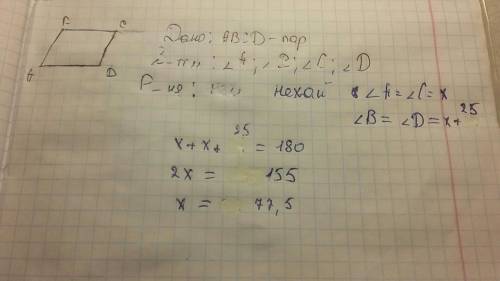 B C
A D
Дано: ABCD - пар
∠A; ∠B; ∠C; ∠D
Р-ня: нехай ∠A = ∠C = x
∠B = ∠D = x + 25
x + x + 25 = 180
2x = 155
x = 77,5